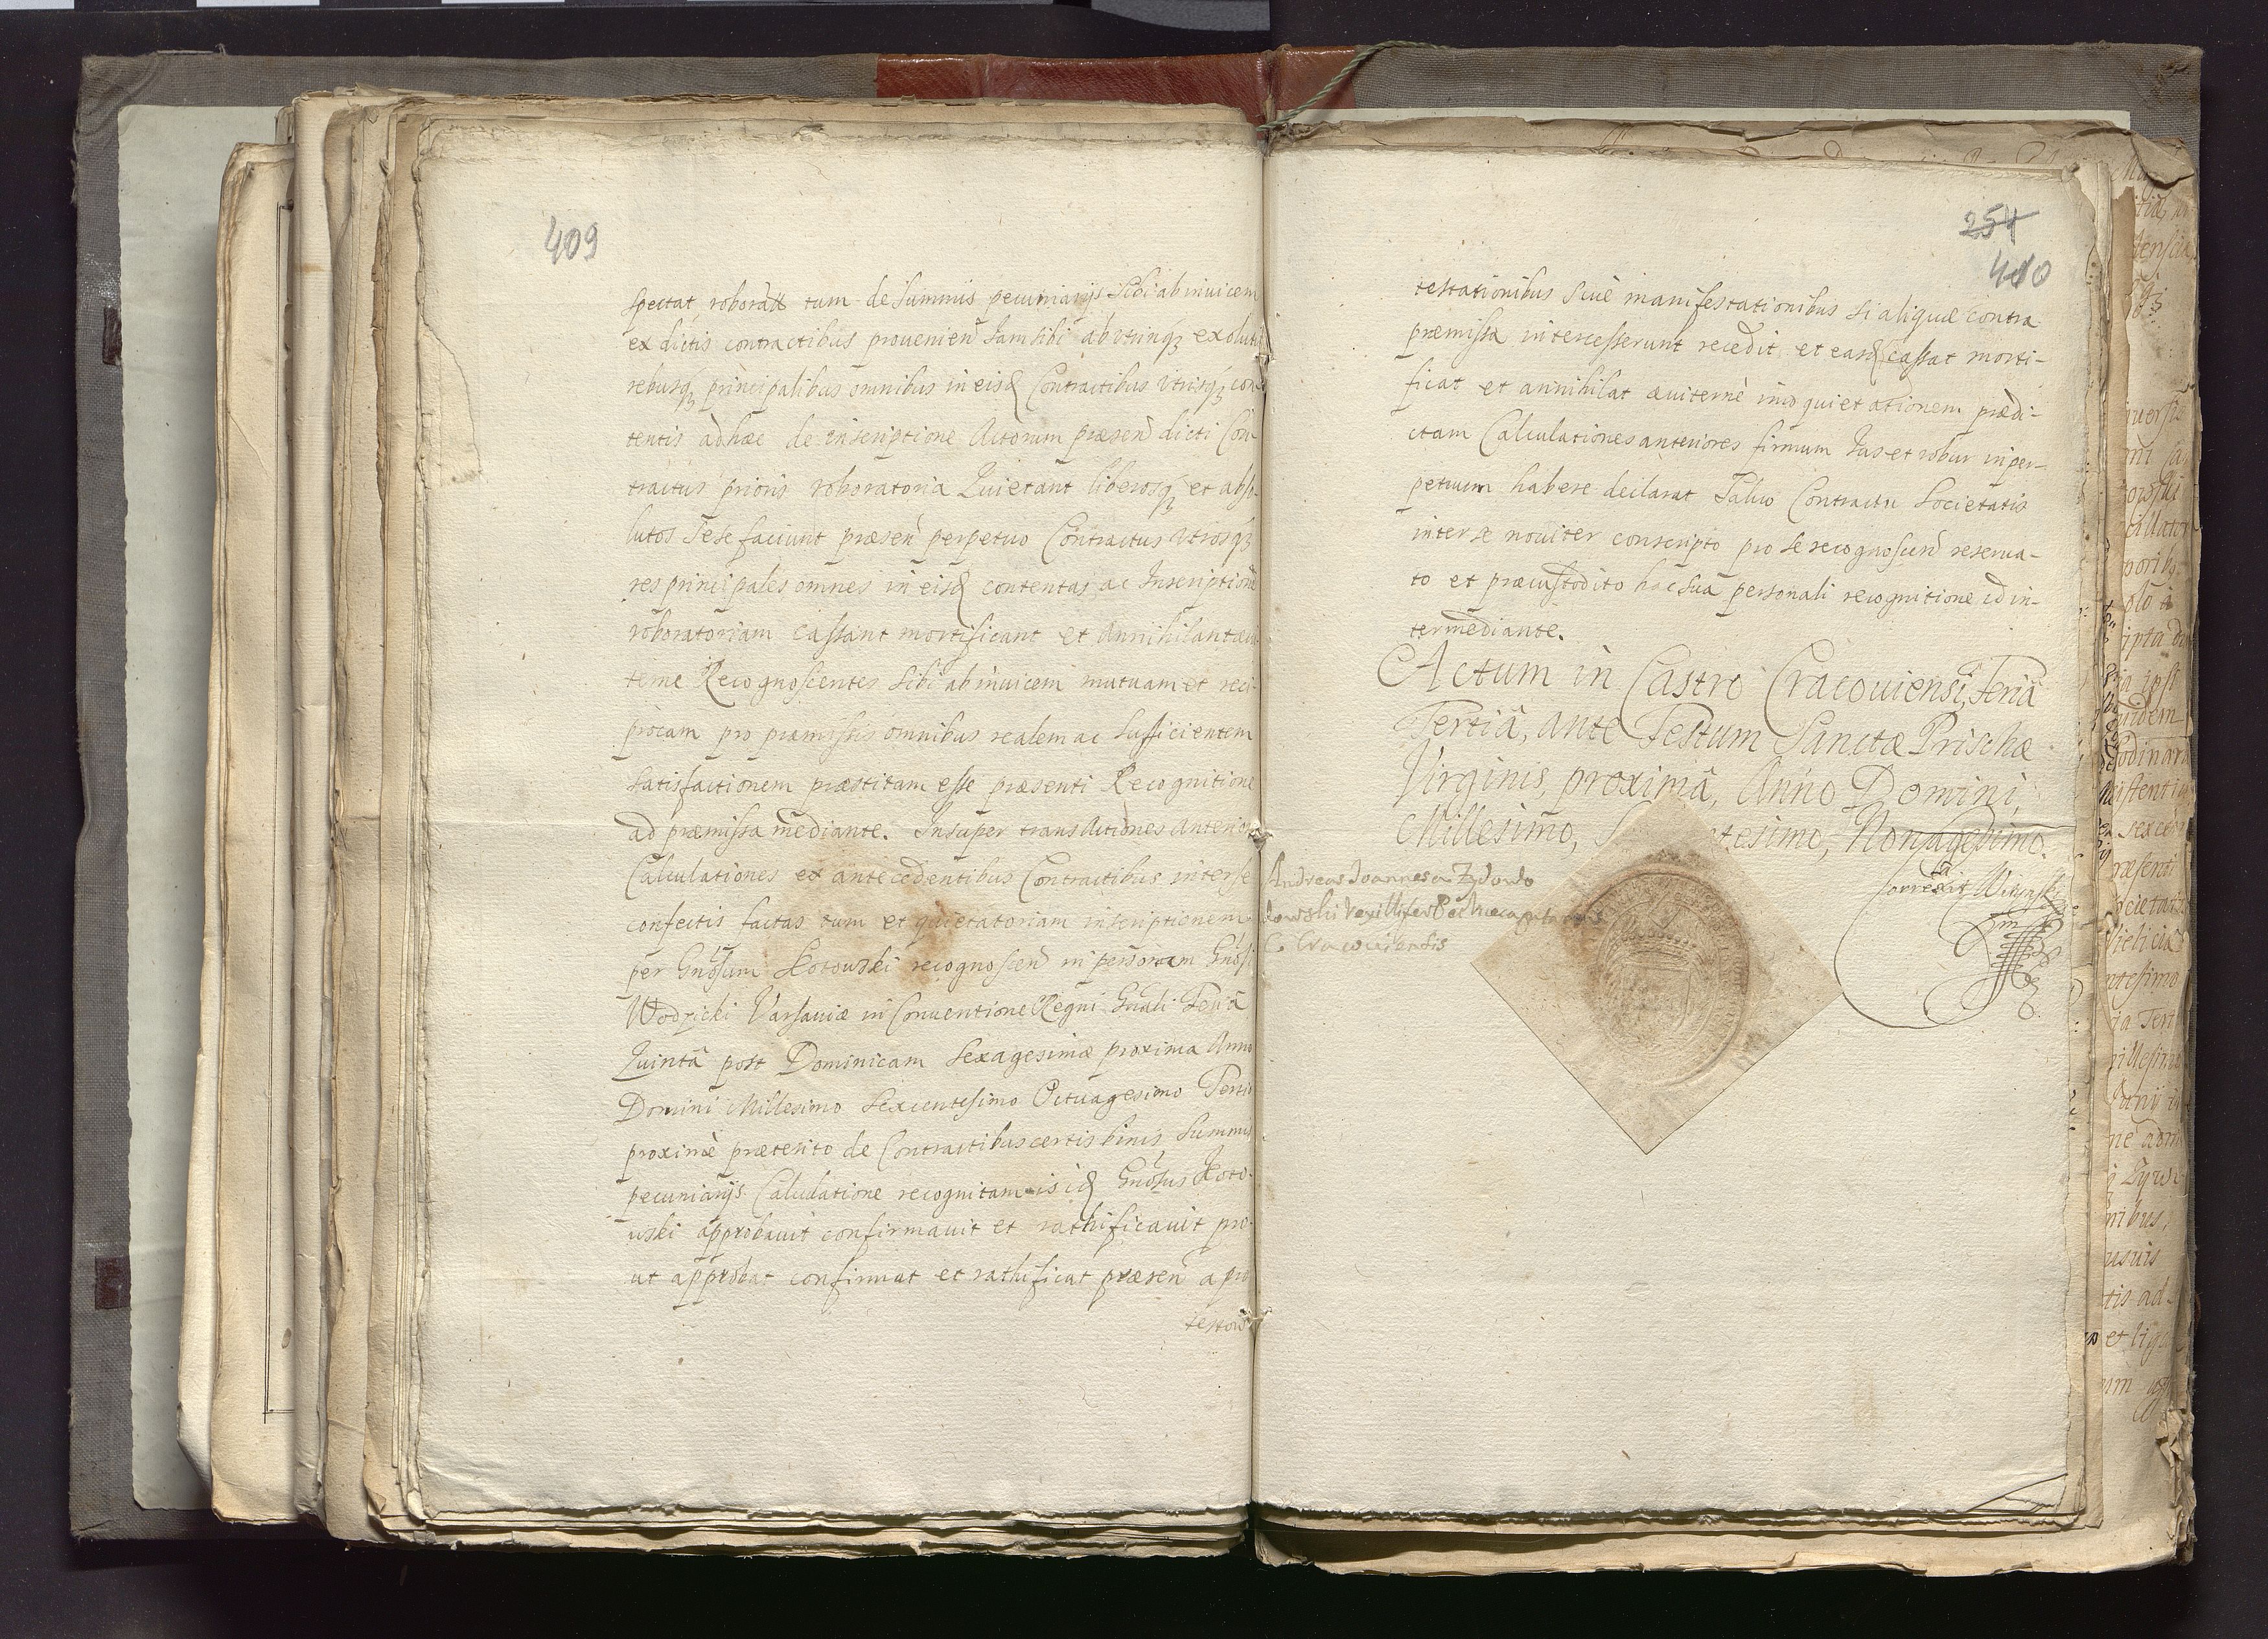 409
spectat, roborat tum de summis pecuniarijs sibi ab inuicem
ex dictis contractibus prouenien iam sibi ab utrinq exolutis
rebusq principalibus omnibus in eisd Contractibus utrisq con-
tentis adhæc de inscriptione Actorum præsen dicti Con-
tractus prioris roboratoria Quietant liberosq et abso-
lutos sese faciunt præsen perpetuo Contractus utrosq
res principales omnes in eisd contentas ac Inscriptione
roboratoriam cassant mortificant et Annihilant æui
terne Recognoscentes sibi ab inuicem mutuam et reci-
procam pro præmissis omnibus realem ac sufficientem
satisfactionem præstitam esse præsenti Recognitione
ad præmissa mediante. Insuper transactiones anterior
Calculationes ex antecedentibus Contractibus inter se
confectis factas tum et quietatoriam inscriptionem
per Gnosum Kotowski recognoscen in personam Gnosi
Wodzicki Varsauiæ in Conuentione Regni Gnali Feria
Quintâ post Dominicam Sexagesimæ proxima Anno
Domini Millesimo Sexcentesimo Octuagesimo Tertio
proximè præterito de Contractibus certis binis summis
pecuniarijs Calculatione recognitam is id Gnosus Koto-
wski approbauit confirmauit et rathificauit pro-
ut approbat confirmat et rathificat præsen a pro
testaôi
254
410
testationibus siuè manifestationibus si aliquæ contra
præmissa intercesserunt recedit et easd cassat morti-
ficat et annihilat æuiternè imò quietationem prædi-
ctam Calculationes anteriores firmum Ius et robur in per-
petuum habere declarat Saluo Contractu Societatis
inter se nouiter conscripto pro se recognoscen reserua-
to et præcustodito hac sua personali recognitione id in-
termediante.
Actum in Castro Cracouiensi, Feriâ
Tertiâ, ante Festum Sanctæ Priscæ
Virginis, proximâ, Anno Domini,
Millesimo, tesimo, Nonagesimo.
Andreas Joannes a Zydowo
dowski Vexillifer
C. Cracouiensis
Correxit Witunski
mp